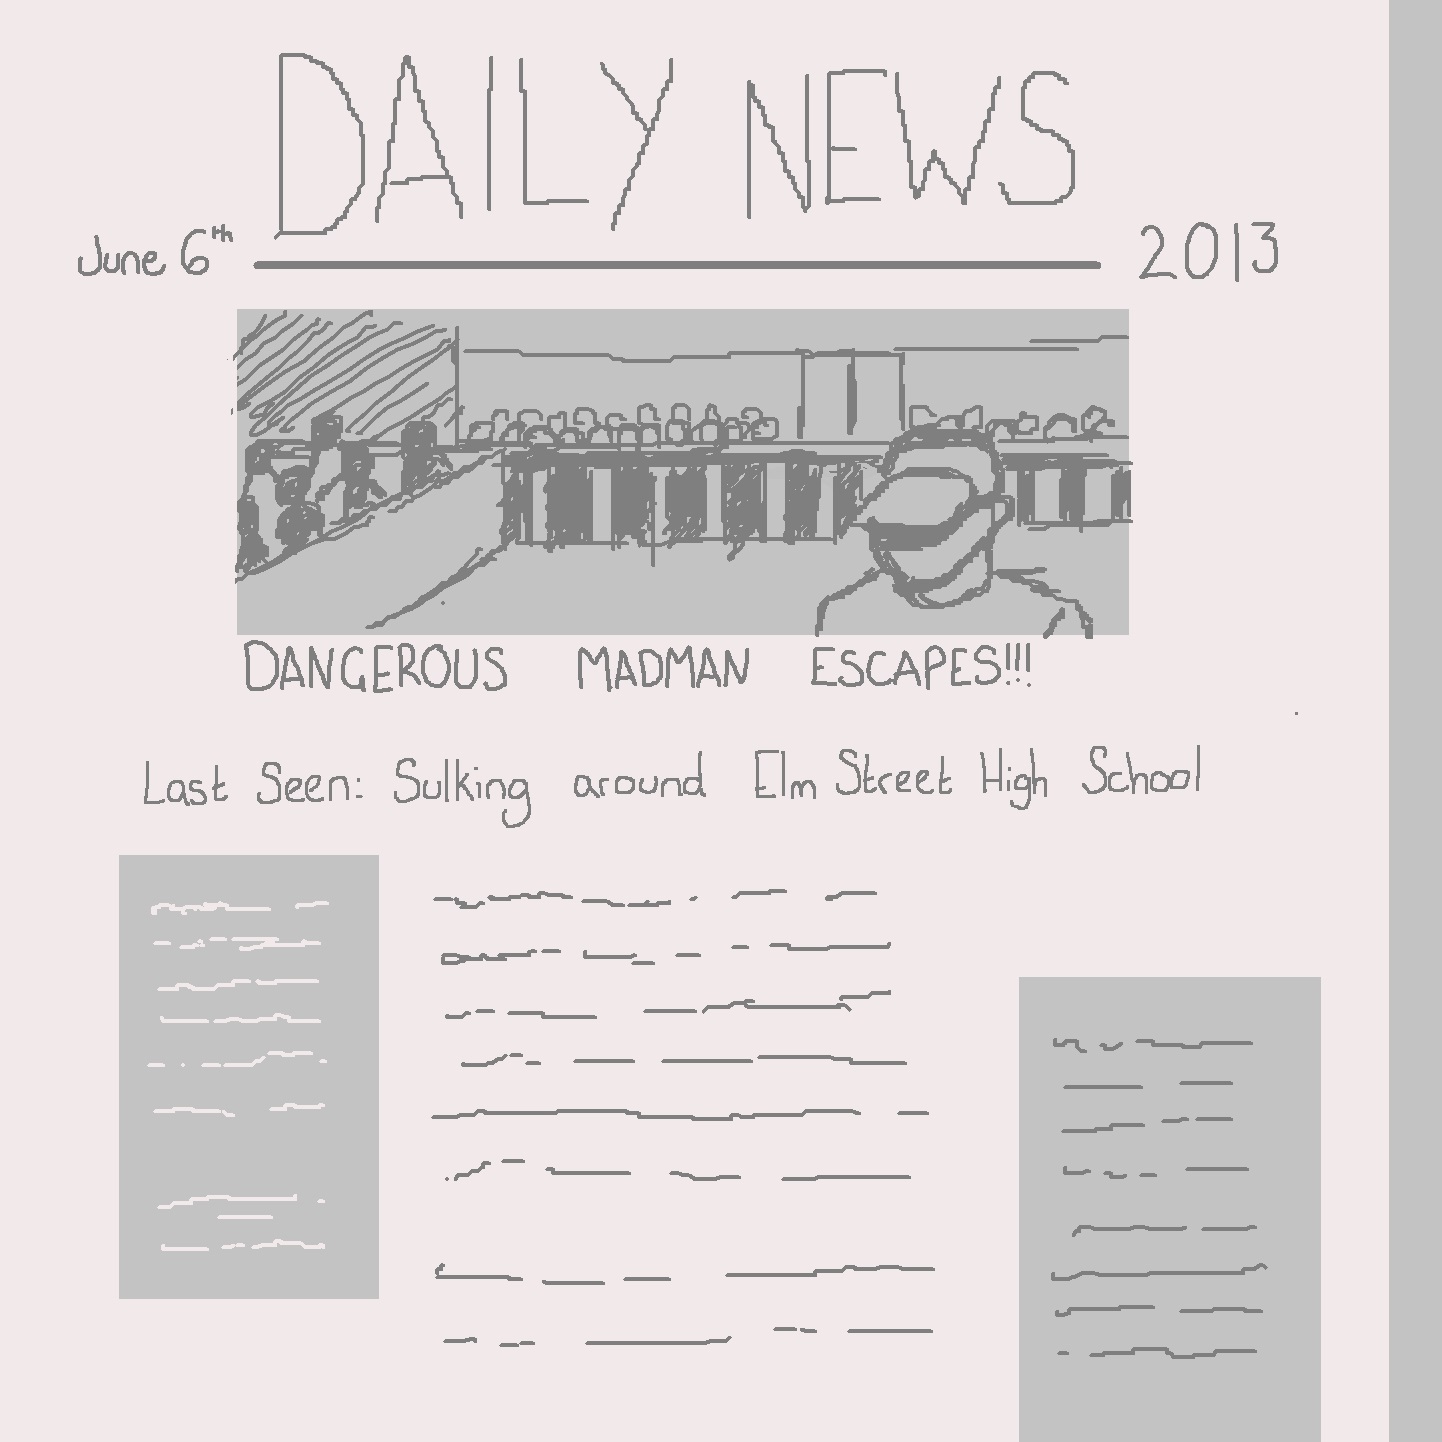 DAILY NEWS
June 6th
2013
DANGEROUS MADMAN ESCAPES!!!
Last Seen: Sulking around Elm Street High School